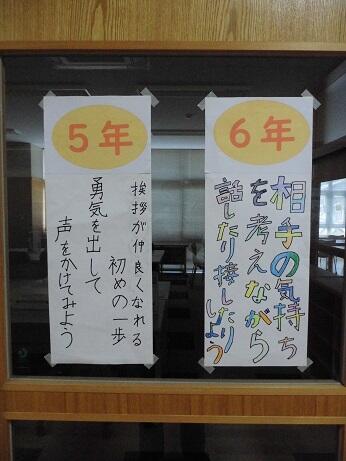 5年
挨拶が仲良くなれる
初めの一歩
勇気を出して
声をかけてみよう
6年
相手の気持ち
を考えながら
話したり接したり
しよう